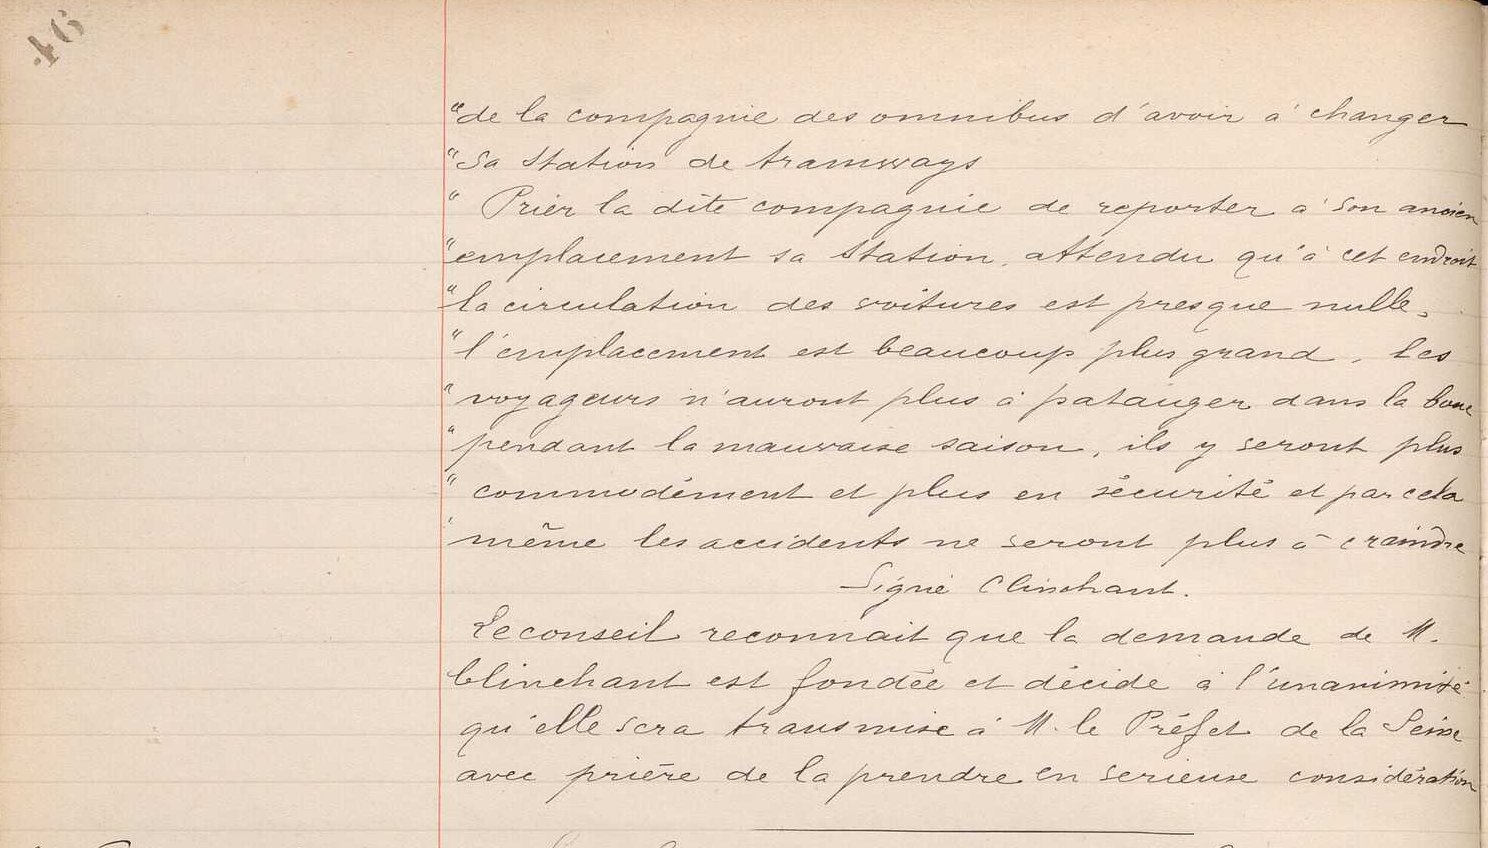 46
"de la compagnie des omnibus d'avoir à changer
"sa station de tramways
" Prier la dite compagnie de reporter à son ancien
"emplacement sa station, attendu qu'à cet endroit
"la circulation des voitures est presque nulle,
"l'emplacement est beaucoup plus grand, les
"voyageurs n'auront plus à patauger dans la boue
"pendant la mauvaise saison, ils y seront plus
"commodément et plus en sécurité et par cela
"même les accidents ne seront plus à craindre
Signé Clinchant.
Le conseil reconnait que la demande de M.
Clinchant est fondée et décide à l'unanimité
qu'elle sera transmise à M. le Préfet de la Seine
avec prière de la prendre en serieuse considération